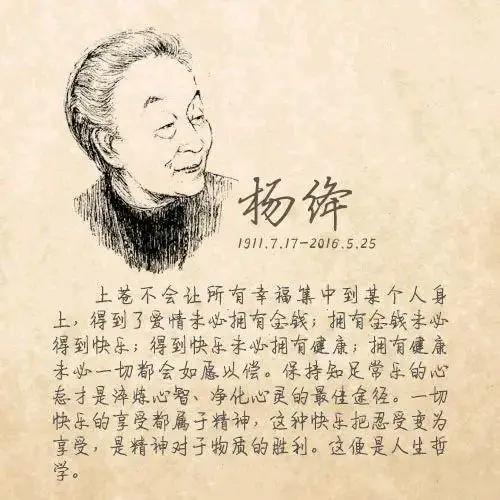 杨绛
1911.7.17-2016.5.25
上苍不会让所有幸福集中到某个人身
上，得到了爱情未必拥有金钱；拥有金钱未必
得到快乐；得到快乐未必拥有健康；拥有健康
未必一切都会如愿以偿。保持知足常乐的心
态才是淬炼心智、净化心灵的最佳途径。一切
快乐的享受都属于精神，这种快乐把忍受变为
享受，是精神对于物质的胜利。这便是人生哲
学。